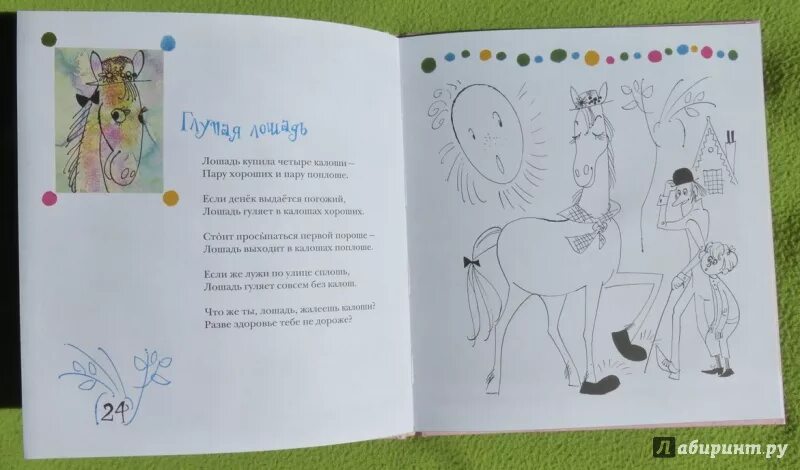 Глупая лошадь
Лошадь купила четыре калоши –
Пару хороших и пару поплоше.
Если денёк выдаётся погожий,
Лошадь гуляет в калошах хороших.
Сто́ит просы́паться первой пороше –
Лошадь выходит в калошах поплоше.
Если же лужи по улице сплошь,
Лошадь гуляет совсем без калош.
Что же ты, лошадь, жалеешь калоши?
Разве здоровье тебе не дороже?
24
Лабиринт.ру